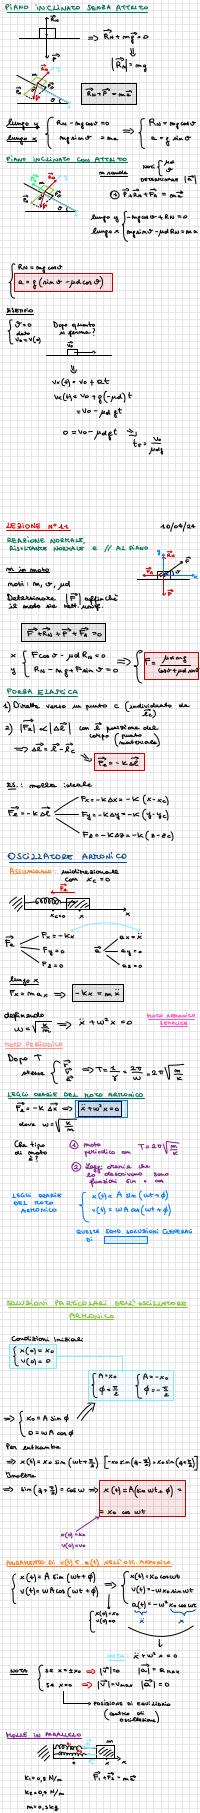 PIANO INCLINATO SENZA ATTRITO
⇒ R_N + mg = 0
|R_N| = mg
R_N + P = ma
lungo y { R_N - mg cosθ = 0 ⇒ { R_N = mg cosθ
lungo x { mg sinθ = ma { a = g sinθ
PIANO INCLINATO CON ATTRITO
P + R_N + F_A = ma
lungo y { -mg cosθ + R_N = 0
lungo x { mg sinθ - μd R_N = ma
{ R_N = mg cosθ
{ a = g (sinθ - μd cosθ)
ESEMPIO
{ θ = 0 Dopo quanto
si ferma?
v_0 = v(0)
v_x(t) = v_0 + at
v_x(t) = v_0 + g(-μd)t
= v_0 - μd g t
0 = v_0 - μd g t ⇒ t_F = v_0 / μd g
LEZIONE N° 11 10/04/24
REAZIONE NORMALE,
RISULTANTE NORMALE E // AL PIANO
m in moto
noti: m, θ, μd
Determinare |F| affinché
il moto sia rett. unif.
F + R_N + P + F_A = 0
x { F cosθ - μd R_N = 0
y { R_N - mg + F sinθ = 0 ⇒ { F = μd mg / cosθ + μd sinθ
FORZA ELASTICA
1) Diretta verso un punto C (individuato da l_C)
2) |F_e| ∝ |Δl| con l posizione del
corpo (punto
materiale)
⇒ Δl = l - l_C ⇒ F_e = -kΔl
ES.: molla ideale
F_x = -kΔx = -k (x - x_C)
F_e = -kΔl F_y = -kΔy = -k (y - y_C)
F_z = -kΔz = -k (z - z_C)
OSCILLATORE ARMONICO
Assumiamo: unidirezionale
con x_C = 0
F_x = -kx
F_e F_y = 0
F_z = 0
a_x = ẍ
a a_y = 0
a_z = 0
lungo x
F_x = m a_x ⇒ -kx = mẍ
definendo
ω = √k/m ⇒ ẍ + ω²x = 0
MOTO ARMONICO
SEMPLICE
MOTO PERIODICO
Dopo T
stesse ⇒ T = 1/ν = 2π/ω = 2π√m/k
LEGGI ORARIE DEL MOTO ARMONICO
F_e = -kΔx ⇒ ẍ + ω²x = 0
dove ω = √k/m
Che tipo
di moto
è?
① moto
periodico con T = 2π√m/k
② Leggi orarie che
lo descrivono sono
funzioni sin e cos
LEGGI ORARIE
DEL MOTO
ARMONICO
{ x(t) = A sin(ωt + ϕ)
{ v(t) = ωA cos(ωt + ϕ)
QUESTE SONO SOLUZIONI GENERALI
DI
SOLUZIONI PARTICOLARI DELL'OSCILLATORE
ARMONICO
Condizioni iniziali
{ x(0) = x_0
{ v(0) = 0
{ A = x_0 { A = -x_0
{ ϕ = π/2 { ϕ = -π/2
⇒ { x_0 = A sinϕ
{ 0 = ωA cosϕ
Per entrambe
⇒ x(t) = x_0 sin(ωt + π/2) [-x_0 sin(α - π/2) = x_0 sin(α + π/2)]
Inoltre
⇒ sin(α + π/2) = cos α ⇒ x(t) = A(sin ωt + ϕ) =
= x_0 cos ωt
x(0) = x_0
v(0) = 0
ANDAMENTO DI v(t) E a(t) NELL'OSC. ARMONICO
{ x(t) = A sin(ωt + ϕ)
{ v(t) = ωA cos(ωt + ϕ)
⇒ { x(t) = x_0 cos ωt
{ v(t) = -ωx_0 sin ωt
{ a(t) = -ω² x_0 cos ωt
{ x(0) = x_0
{ v(0) = 0
NOTA: ẍ + ω²x = 0
NOTA { se x = ±x_0 ⇒ |v| = 0 |a| = a_MAX
{ se x = 0 ⇒ |v| = v_MAX |a| = 0
POSIZIONE DI EQUILIBRIO
(centro di
oscillazione)
MOLLE IN PARALLELO
F_1 + F_2 = ma
k_1 = 0,3 N/m
k_2 = 0,1 N/m
m = 0,3 kg